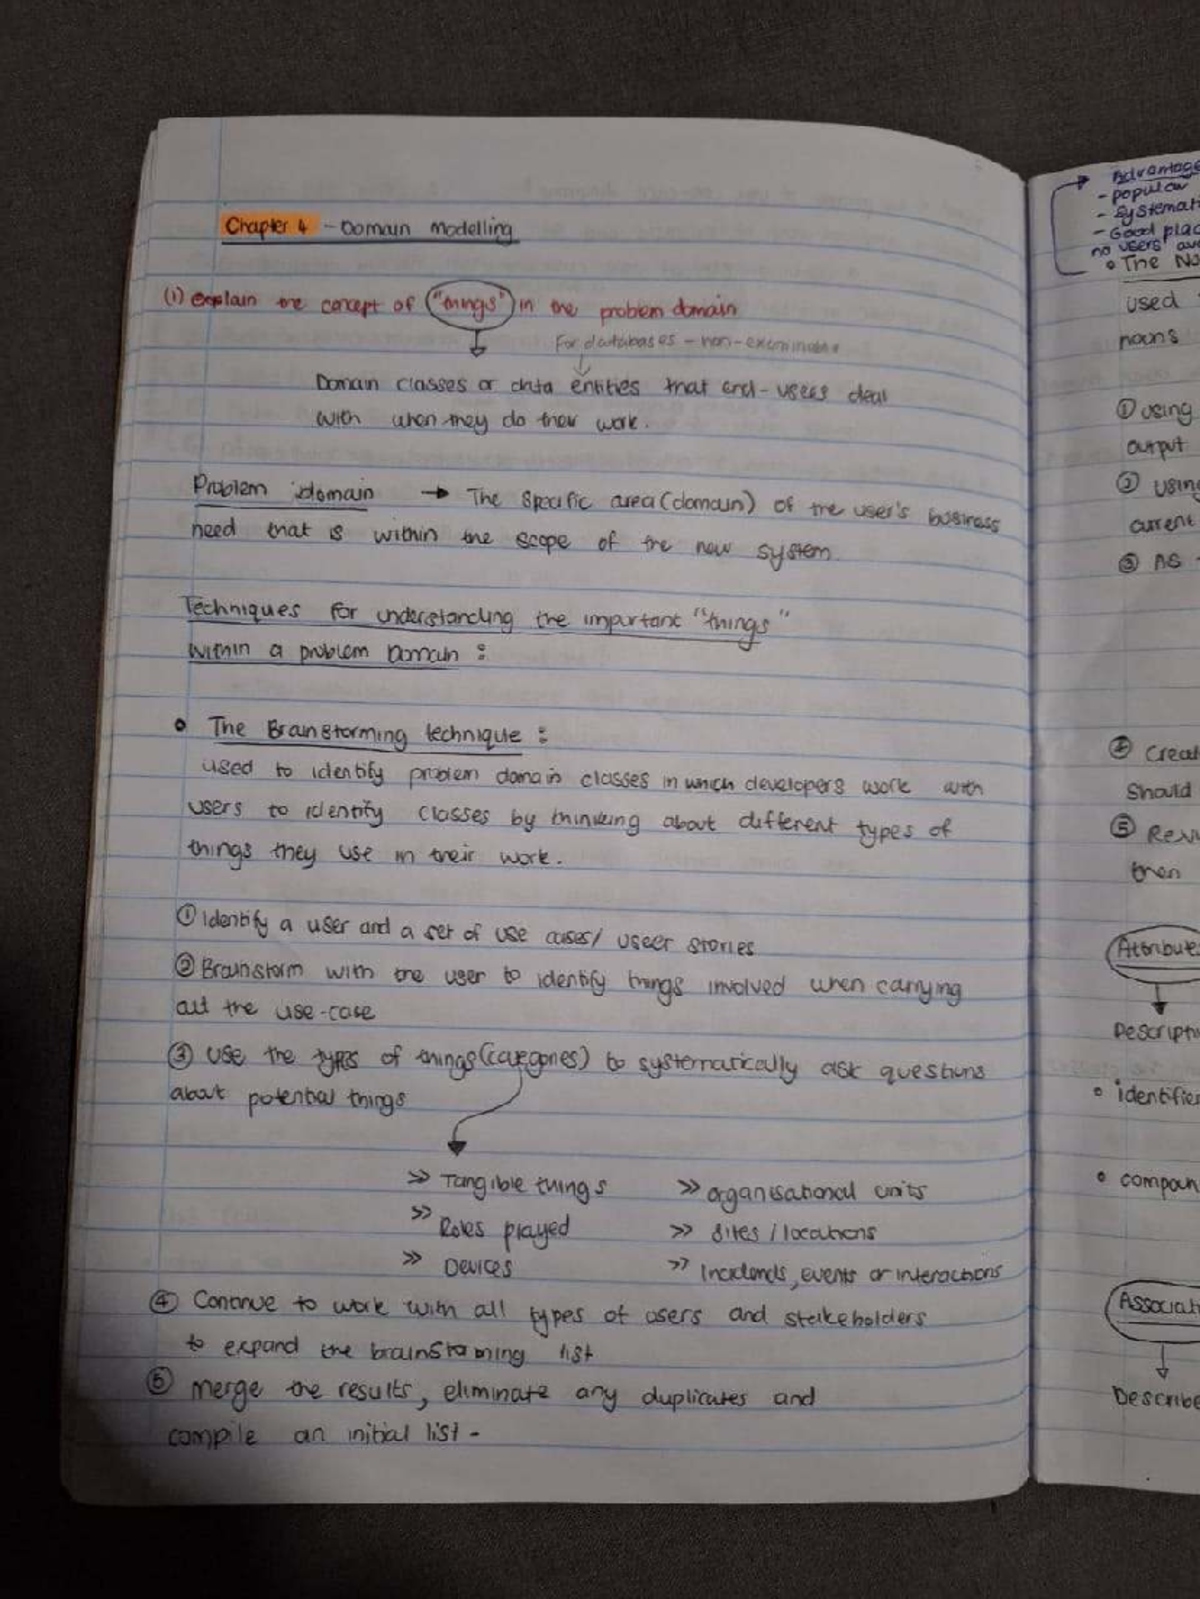 Chapter 4 - Domain Modelling
(1) explain the concept of "things" in the problem domain
For databases - non-examinable
Domain classes or data entities that end-users deal
with when they do their work.
Problem domain → The specific area (domain) of the user's business
need that is within the scope of the new system
Techniques for understanding the important "things"
within a problem Domain :
• The Brainstorming technique :
used to identify problem domain classes in which developers work with
users to identify classes by thinking about different types of
things they use in their work.
① Identify a user and a set of use cases/ useer stories
② Brainstorm with the user to identify things involved when carrying
out the use-case
③ use the types of things (categories) to systematically ask questions
about potential things
>> Tangible things >> organisational units
>> Roles played >> sites / locations
>> Devices >> Incidends, events or interactions
④ Continue to work with all types of users and stakeholders
to expand the brainstorming list
⑤ merge the results, eliminate any duplicates and
compile an initial list -
Advantage
- popular
- Systemati
- Good plac
no users
• The No
used
nouns
① using
output
② using
current
③ AS
④ Creat
should
⑤
then
Attribute
Descripti
• identifier
• compoun
Associati
Describe